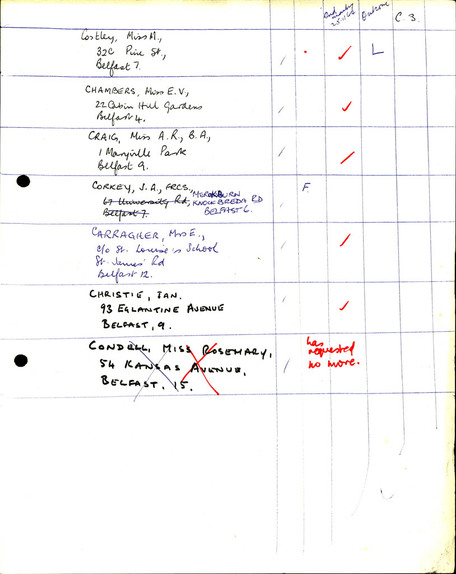 Costley, Miss M.,
32C Pine St.,
Belfast 7.
L
CHAMBERS, Miss E.V.,
22 Cabin Hill Gardens
Belfast 4.
CRAIG, Miss A.R., B.A.,
1 Maryville Park
Belfast 9.
CORKEY, J.A., FRCS.,
67 University Rd,
Belfast 7.
KNOCKBREDA RD
BELFAST 6.
F.
CARRAGHER, Miss E.,
c/o St. Louise's School
St. James' Rd
Belfast 12.
CHRISTIE, IAN.
93 EGLANTINE AVENUE
BELFAST, 9.
CONDELL, MISS ROSEMARY,
54 KANSAS AVENUE,
BELFAST, 15.
has
requested
no more.
C 3.